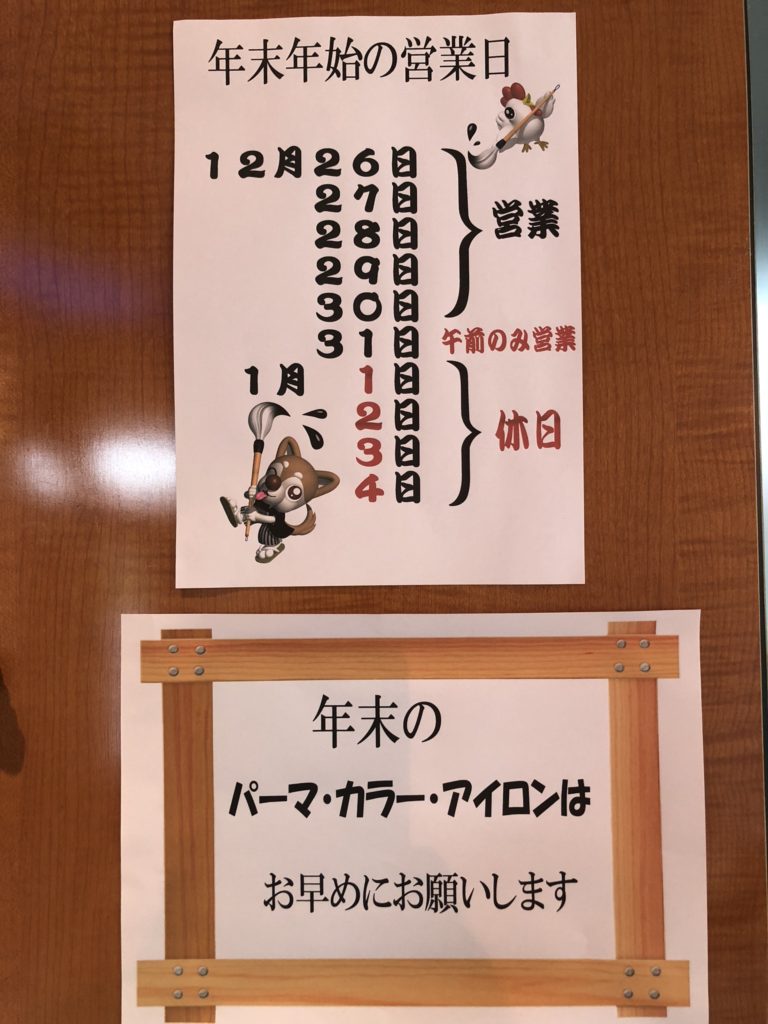 年末年始の営業日
１２月２６日
２７日
２８日
２９日
３０日
営業
３１日 午前のみ営業
１月 １日
２日
３日
４日
休日
年末の
パーマ・カラー・アイロンは
お早めにお願いします